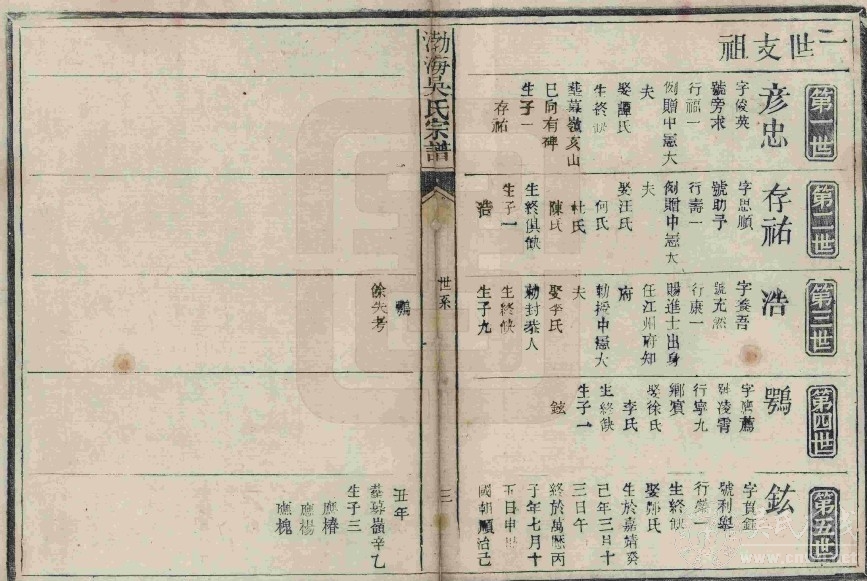 二世支祖
第一世
彦忠
字俊英
號旁求
行福一
例贈中憲大
夫
娶譚氏
生終缺
葬墓嶺亥山
巳向有碑
生子一
存祐
第二世
存祐
字思順
號助予
行壽一
例贈中憲大
夫
娶汪氏
何氏
杜氏
陳氏
生終俱缺
生子一
浩
第三世
浩
字養吾
號充然
行康一
賜進士出身
任江州府知
府
勅授中憲大
夫
娶李氏
勅封恭人
生終缺
生子九
鶚
餘失考
第四世
鶚
字應薦
號凌霄
行寧九
鄉賓
娶徐氏
李氏
生終缺
生子一
鉉
第五世
鉉
字貫鉉
號利舉
行榮一
生終缺
娶鄭氏
生於嘉靖癸
己年三月十
三日午
終於萬歷丙
子年七月十
五日申
國朝順治己
丑年
葬墓嶺辛乙
生子三
應椿
應楊
應槐
渤海吳氏宗譜
世系
三